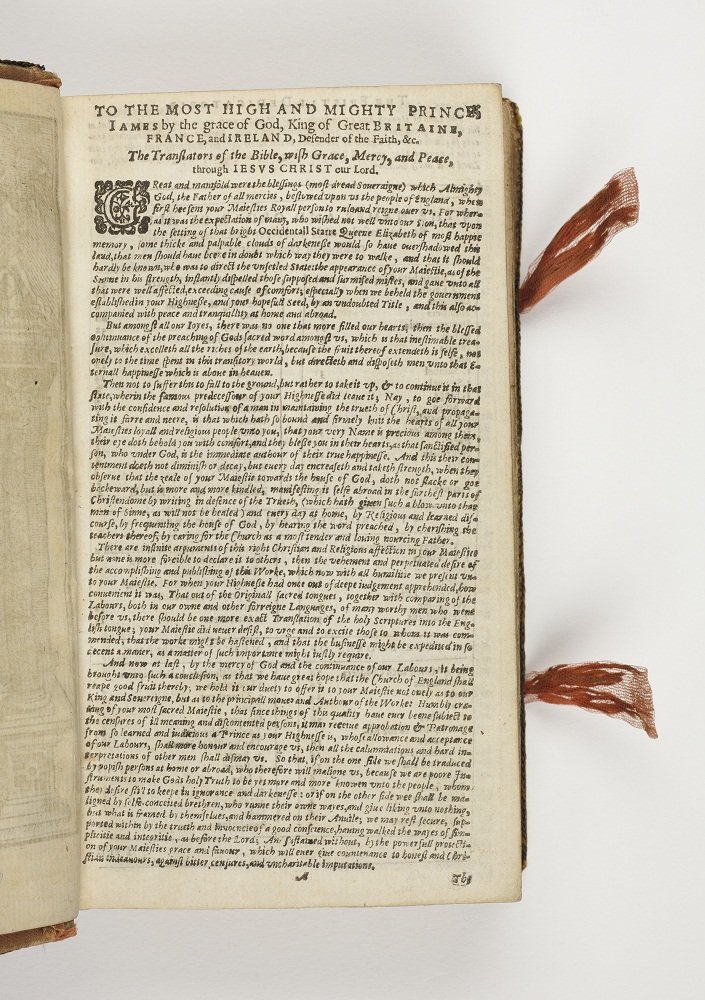 TO THE MOST HIGH AND MIGHTY PRINCE,
IAMES by the grace of God, King of Great BRITAINE,
FRANCE, and IRELAND, Defender of the Faith, &c.
The Tranſlators of the Bible, wiſh Grace, Mercy, and Peace,
through IESVS CHRIST our Lord.
GReat and manifold were the bleſsings (moſt dread Soueraigne) which Almighty
God, the Father of all mercies, beſtowed vpon vs the people of England, when
firſt hee ſent your Maieſties Royall perſon to rule and reigne ouer vs. For where-
as it was the expectation of many, who wiſhed not well vnto our Sion, that vpon
the ſetting of that bright Occidentall Starre Queene Elizabeth of moſt happie
memory, ſome thicke and palpable clouds of darkeneſſe would ſo haue ouerſhadowed this
land, that men ſhould haue beene in doubt which way they were to walke, and that it ſhould
hardly be known, who was to direct the vnſetled State: the appearance of your Maieſtie, as of the
Sunne in his ſtrength, inſtantly diſpelled thoſe ſuppoſed and ſurmiſed miſtes, and gaue vnto all
that were well affected, exceeding cauſe of comfort; eſpecially when we beheld the gouernment
eſtabliſhed in your Highneſſe, and your hopefull Seed, by an vndoubted Title, and this alſo ac-
companied with peace and tranquillity at home and abroad.
But amongſt all our Ioyes, there was no one that more filled our hearts, then the bleſſed
continuance of the preaching of Gods ſacred word amongſt vs, which is that ineſtimable trea-
ſure, which excelleth all the riches of the earth, becauſe the fruit thereof extendeth it ſelfe, not
onely to the time ſpent in this tranſitory world, but directeth and diſpoſeth men vnto that E-
ternall happineſſe which is aboue in heauen.
Then not to ſuffer this to fall to the ground, but rather to take it vp, & to continue it in that
ſtate, wherin the famous predeceſſour of your Highneſſe did leaue it; Nay, to goe forward
with the confidence and reſolution of a man in maintaining the trueth of Chriſt, and propaga-
ting it farre and neere, is that which hath ſo bound and firmely knit the hearts of all your
Maieſties loyall and religious people vnto you, that your very Name is precious among them,
their eye doth behold you with comfort, and they bleſſe you in their hearts, as that ſanctified per-
ſon, who vnder God, is the immediate authour of their true happineſſe. And this their con-
tentment doeth not diminiſh or decay, but euery day encreaſeth and taketh ſtrength, when they
obſerue that the zeale of your Maieſtie towards the houſe of God, doth not ſlacke or goe
backeward, but is more and more kindled, manifeſting it ſelfe abroad in the furtheſt parts of
Chriſtendome by writing in defence of the Trueth, (which hath giuen ſuch a blow vnto that
man of Sinne, as will not be healed) and euery day at home, by Religious and learned diſ-
courſe, by frequenting the houſe of God, by hearing the word preached, by cheriſhing the
teachers thereof, by caring for the Church as a moſt tender and louing nourcing Father.
There are infinite arguments of this right Chriſtian and Religious affection in your Maieſtie:
but none is more forcible to declare it to others, then the vehement and perpetuated deſire of
the accompliſhing and publiſhing of this Worke, which now with all humilitie we preſent vn-
to your Maieſtie. For when your Highneſſe had once out of deepe iudgement apprehended, how
conuenient it was, That out of the Originall ſacred tongues, together with comparing of the
Labours, both in our owne and other forreigne Languages, of many worthy men who went
before vs, there ſhould be one more exact Tranſlation of the holy Scriptures into the Eng-
liſh tongue; your Maieſtie did neuer deſiſt, to vrge and to excite thoſe to whom it was com-
mended, that the worke might be haſtened, and that the buſineſſe might be expedited in ſo
decent a maner, as a matter of ſuch importance might iuſtly require.
And now at laſt, by the mercy of God and the continuance of our Labours, it being
brought vnto ſuch a concluſion, as that we haue great hope that the Church of England ſhall
reape good fruit thereby, we hold it our duety to offer it to your Maieſtie not onely as to our
King and Souereigne, but as to the principall mouer and Authour of the Worke: Humbly cra-
uing of your moſt ſacred Maieſtie, that ſince things of this quality haue euer beene ſubiect to
the cenſures of ill meaning and diſcontented perſons, it may receiue approbation & Patronage
from ſo learned and iudicious a Prince as your Highneſſe is, whoſe allowance and acceptance
of our Labours, ſhall more honour and encourage vs, then all the calumniations and hard in-
terpretations of other men ſhall diſmay vs. So that, if on the one ſide we ſhall be traduced
by popiſh perſons at home or abroad, who therefore will maligne vs, becauſe we are poore In-
ſtruments to make Gods holy Truth to be yet more and more knowen vnto the people, whom
they deſire ſtil to keepe in ignorance and darkeneſſe: or if on the other ſide wee ſhall be ma-
ligned by ſelfe-conceited brethren, who runne their owne wayes, and giue liking vnto nothing,
but what is framed by themſelues, and hammered on their Anuile; we may reſt ſecure, ſup-
ported within by the trueth and innocencie of a good conſcience, hauing walked the wayes of ſim-
plicitie and integritie, as before the Lord; And ſuſtained without, by the powerfull protecti-
on of your Maieſties grace and fauour, which will euer giue countenance to honeſt and Chri-
ſtian indeauours, againſt bitter cenſures, and vncharitable imputations.
A The